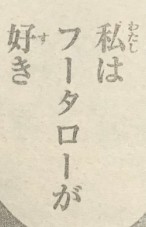 私は
フータローが
好き